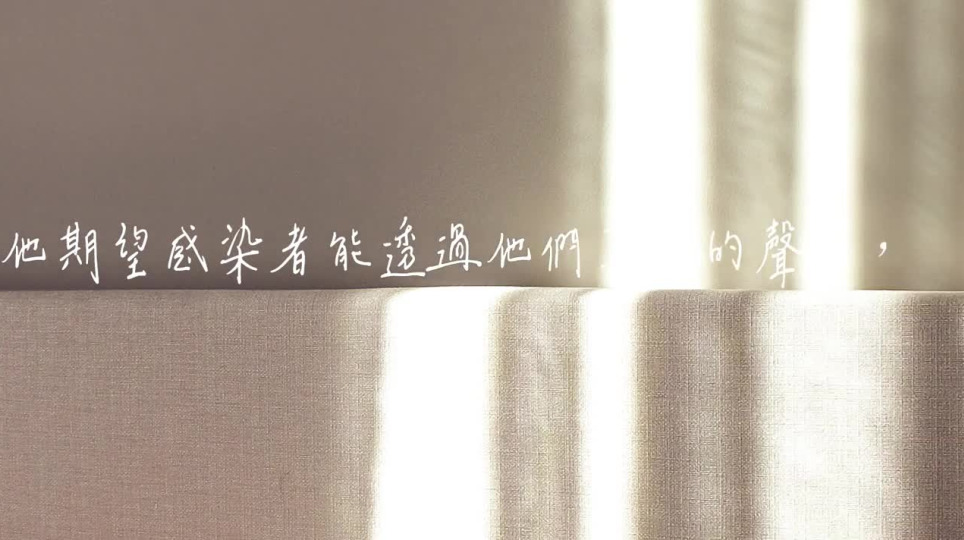 他期望感染者能透過他們的聲，